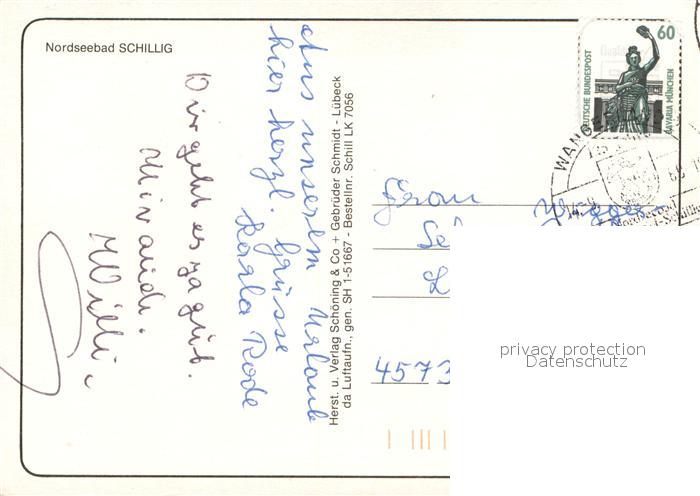 Nordseebad SCHILLIG
Dir geht es ja gut.
Mir auch.
Willi
Aus unserem Urlaub
hier herzl. Grüsse
Karla Rode
Herst. u. Verlag Schöning & Co + Gebrüder Schmidt - Lübeck
da Luftaufn., gen. SH 1-51667 - Bestellnr. Schill LK 7056
60
DEUTSCHE BUNDESPOST
BAVARIA MÜNCHEN
WANGE
Nordseebad
Frau
4573
privacy protection
Datenschutz